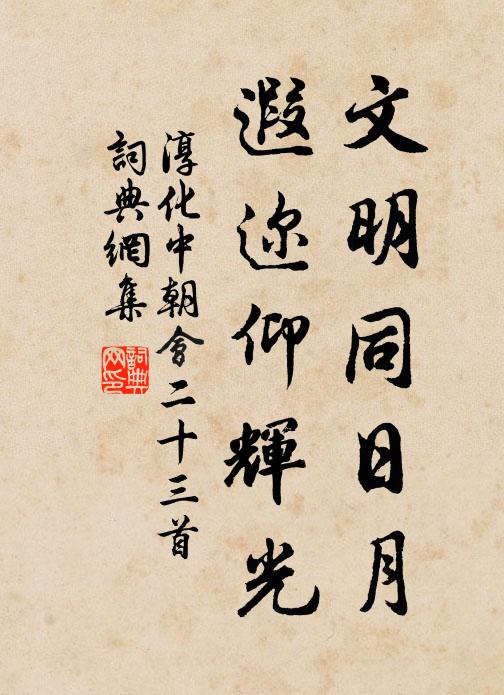 文明同日月
遐迩仰輝光
淳化中朝會二十三首
詞典網集
詞典網印